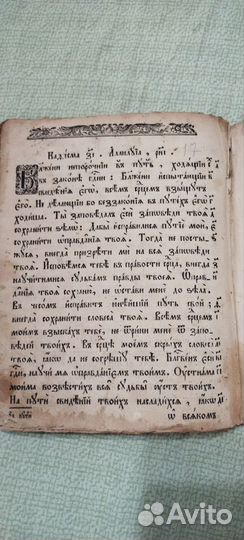 Каѳісма з҃і . Аллилꙋіа , рн҃і
17
Бл҃жени непорочнїи въ пꙋть , ходѧщїи
въ законѣ гд҃ни : Бл҃жени испытающїи
свидѣнїѧ єгѡ , всѣмъ срⷣцемъ взыщꙋтъ
єго . Не дѣлающїи бо беззаконїѧ въ пꙋтехъ єгѡ
ходиша . Ты заповѣдалъ єси заповѣди твоѧ
сохранити ѕѣлѡ : Дабы исправилисѧ пꙋтїе мои ,
сохранити ѡправданїѧ твоѧ . Тогда не посты
жꙋсѧ , внегда призрѣти ми на всѧ заповѣди
твоѧ . Исповѣмсѧ тебѣ въ правости срⷣца , внегда
наꙋчитимисѧ сꙋдбамъ правды твоеѧ . Ѡправ
данїѧ твоѧ сохраню , не ѡстави мене до ѕѣла .
Въ чесомъ исправитъ юнѣйшїй пꙋть свой
внегда сохранити словеса твоѧ . Всѣмъ срⷣцемъ
моимъ взыскахъ тебе , не ѿрини мене ѿ запо
вѣдей твоихъ . Въ срⷣцѣ моемъ скрыхъ словеса
твоѧ , ꙗко да не согрѣшꙋ тебѣ . Блг҃венъ єси
гд҃и , наꙋчи мѧ ѡправданїемъ твоимъ . Оустнама
моима возвѣстихъ всѧ сꙋдбы оустъ твоихъ .
На пꙋти свидѣнїй твоихъ насладихсѧ , ꙗкоже
ѡ всѧкомъ
Avito